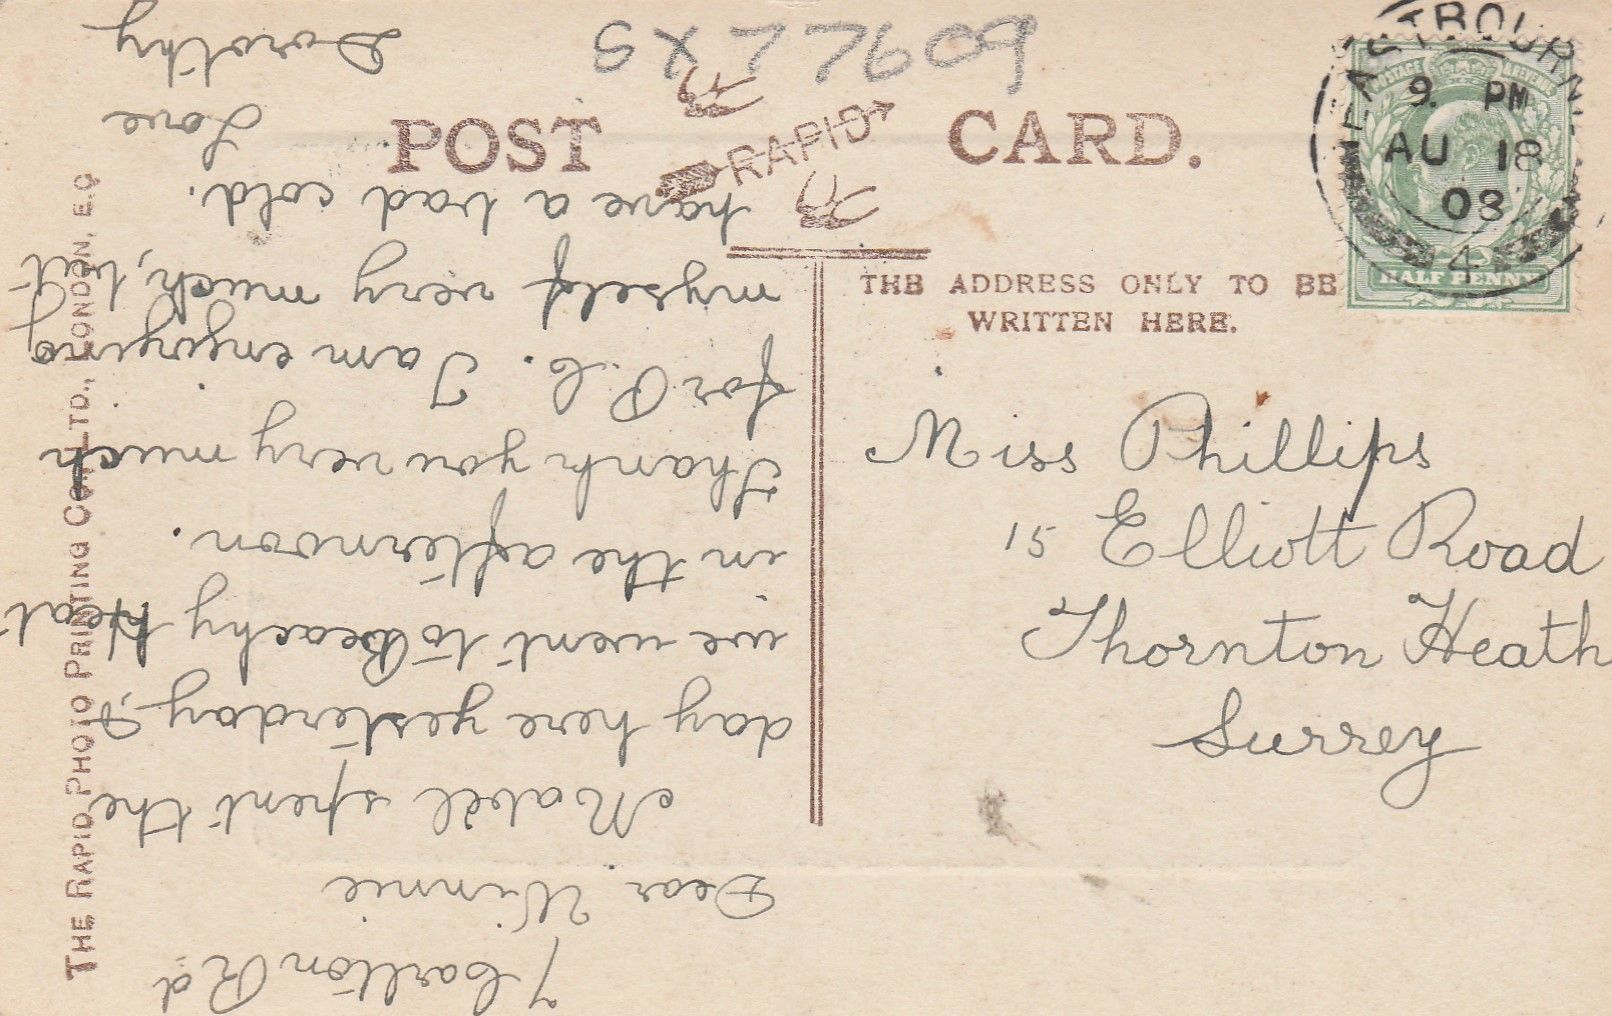 POST CARD.
RAPID
THE ADDRESS ONLY TO BE
WRITTEN HERE.
EASTBOURNE
9. PM
AU 18
08
4
POSTAGE REVENUE
HALF PENNY
Miss Phillips
15 Elliott Road
Thornton Heath
Surrey
7 Carlton Rd
Dear Winnie
Mabel spent the
day here yesterday, &
we went to Beachy Head
in the afternoon.
Thank you very much
for P.C. I am enjoying
myself very much, but
have a bad cold.
Love
Dorothy
THE RAPID PHOTO PRINTING CO., LTD., LONDON, E.C